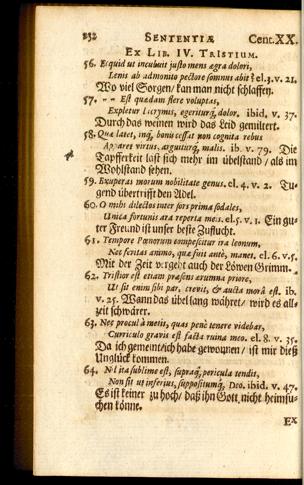 232 SENTENTIÆ Cent. XX.
EX LIB. IV. TRISTIUM.
56. Ecquid ut incubuit justo mens ægra dolori,
Lenis ab admonito pectore somnus abit? el. 3. v. 21.
Wo viel Sorgen / kan man nicht schlaffen.
57. -- Est quædam flere voluptas,
Expletur lacrymis, egeriturq́, dolor. ibid. v. 37.
Durch das weinen wird das Leid gemiltert.
58. Quæ latet, inq́, bonis cessat non cognita rebus
Apparet virtus, arguiturq́, malis. ib. v. 79. Die
Tapfferkeit last sich mehr im übelstand / als im
Wohlstand sehen.
59. Exuperas morum nobilitate genus. el. 4. v. 2. Tu-
gend übertrifft den Adel.
60. O mihi dilectos inter sors prima sodales,
Unica fortunis ara reperta meis. el. 5. v. 1. Ein gu-
ter Freund ist unser beste Zuflucht.
61. Tempore Pœnorum compescitur ira leonum,
Nec feritas animo, quæ fuit antè, manet. el. 6. v. 5.
Mit der Zeit vergeht auch der Löwen Grimm.
62. Tristior est etiam præsens ærumna priore,
Ut sit enim sibi par, crevit, & aucta morâ est. ib.
v. 25. Wann das übel lang währet / wird es all-
zeit schwärer.
63. Nec procul à metis, quas penè tenere videbar,
Curriculo gravis est facta ruina meo. el. 8. v. 35.
Da ich gemeint / ich habe gewonnen / ist mir dieß
Unglück kommen.
64. Nil ita sublime est, supraq́, pericula tendit,
Non sit ut inferius, suppositumq́, Deo. ibid. v. 47.
Es ist keiner zu hoch / daß ihn Gott nicht heimsu-
chen könne.
EX